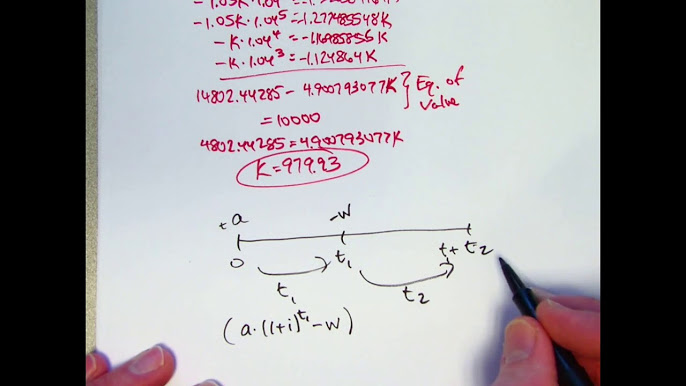 -1.05K·1.04⁵=-1.277485548K
-K·1.04⁴=-1.16985856K
-K·1.04³=-1.124864K
14802.44285-4.900793077K } Eq. of
Value
=10000
4802.44285=4.900793077K
K=979.93
+a -w
0 t₁ t₁+t₂
t₁ t₂
(a·(1+i)^t₁-w)